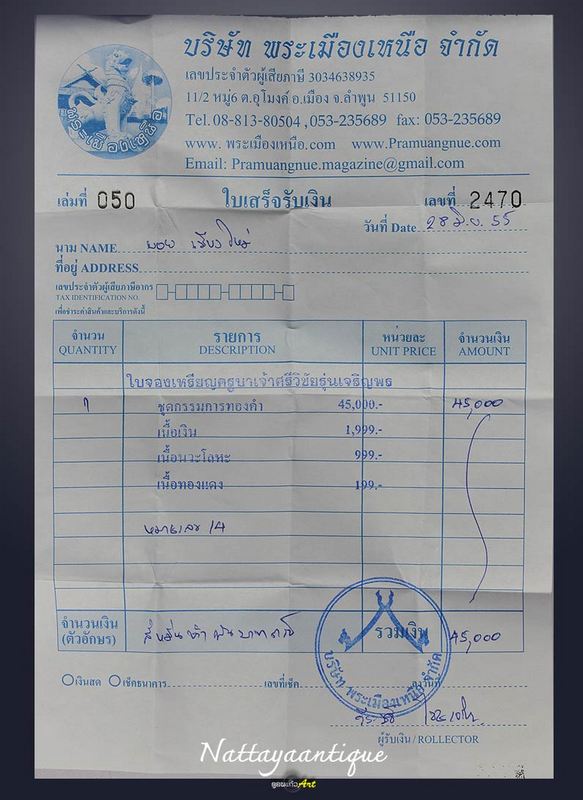 บริษัท พระเมืองเหนือ จำกัด
เลขประจำตัวผู้เสียภาษี 3034638935
11/2 หมู่6 ต.อุโมงค์ อ.เมือง จ.ลำพูน 51150
Tel. 08-813-80504 ,053-235689 fax: 053-235689
www. พระเมืองเหนือ.com www.Pramuangnue.com
Email: Pramuangnue.magazine@gmail.com
พระเมืองเหนือ
เล่มที่ 050 ใบเสร็จรับเงิน เลขที่ 2470
วันที่ Date 28 มิ.ย. 55
นาม NAME เชียงใหม่
ที่อยู่ ADDRESS
เลขประจำตัวผู้เสียภาษีอากร
TAX IDENTIFICATION NO.
เพื่อชำระค่าสินค้าและบริการดังนี้
จำนวน รายการ หน่วยละ จำนวนเงิน
QUANTITY DESCRIPTION UNIT PRICE AMOUNT
ใบจองเหรียญครูบาเจ้าศรีวิชัยรุ่นเจริญพร
1 ชุดกรรมการทองคำ 45,000.- 45,000
เนื้อเงิน 1,999.-
เนื้อนวะโลหะ 999.-
เนื้อทองแดง 199.-
หมายเลข 14
จำนวนเงิน
(ตัวอักษร) สี่หมื่นห้าพันบาทถ้วน รวมเงิน 45,000
เงินสด เช็คธนาคาร เลขที่เช็ค
บริษัท พระเมืองเหนือ จำกัด
ผู้รับเงิน / ROLLECTOR
Nattayaantique
Art